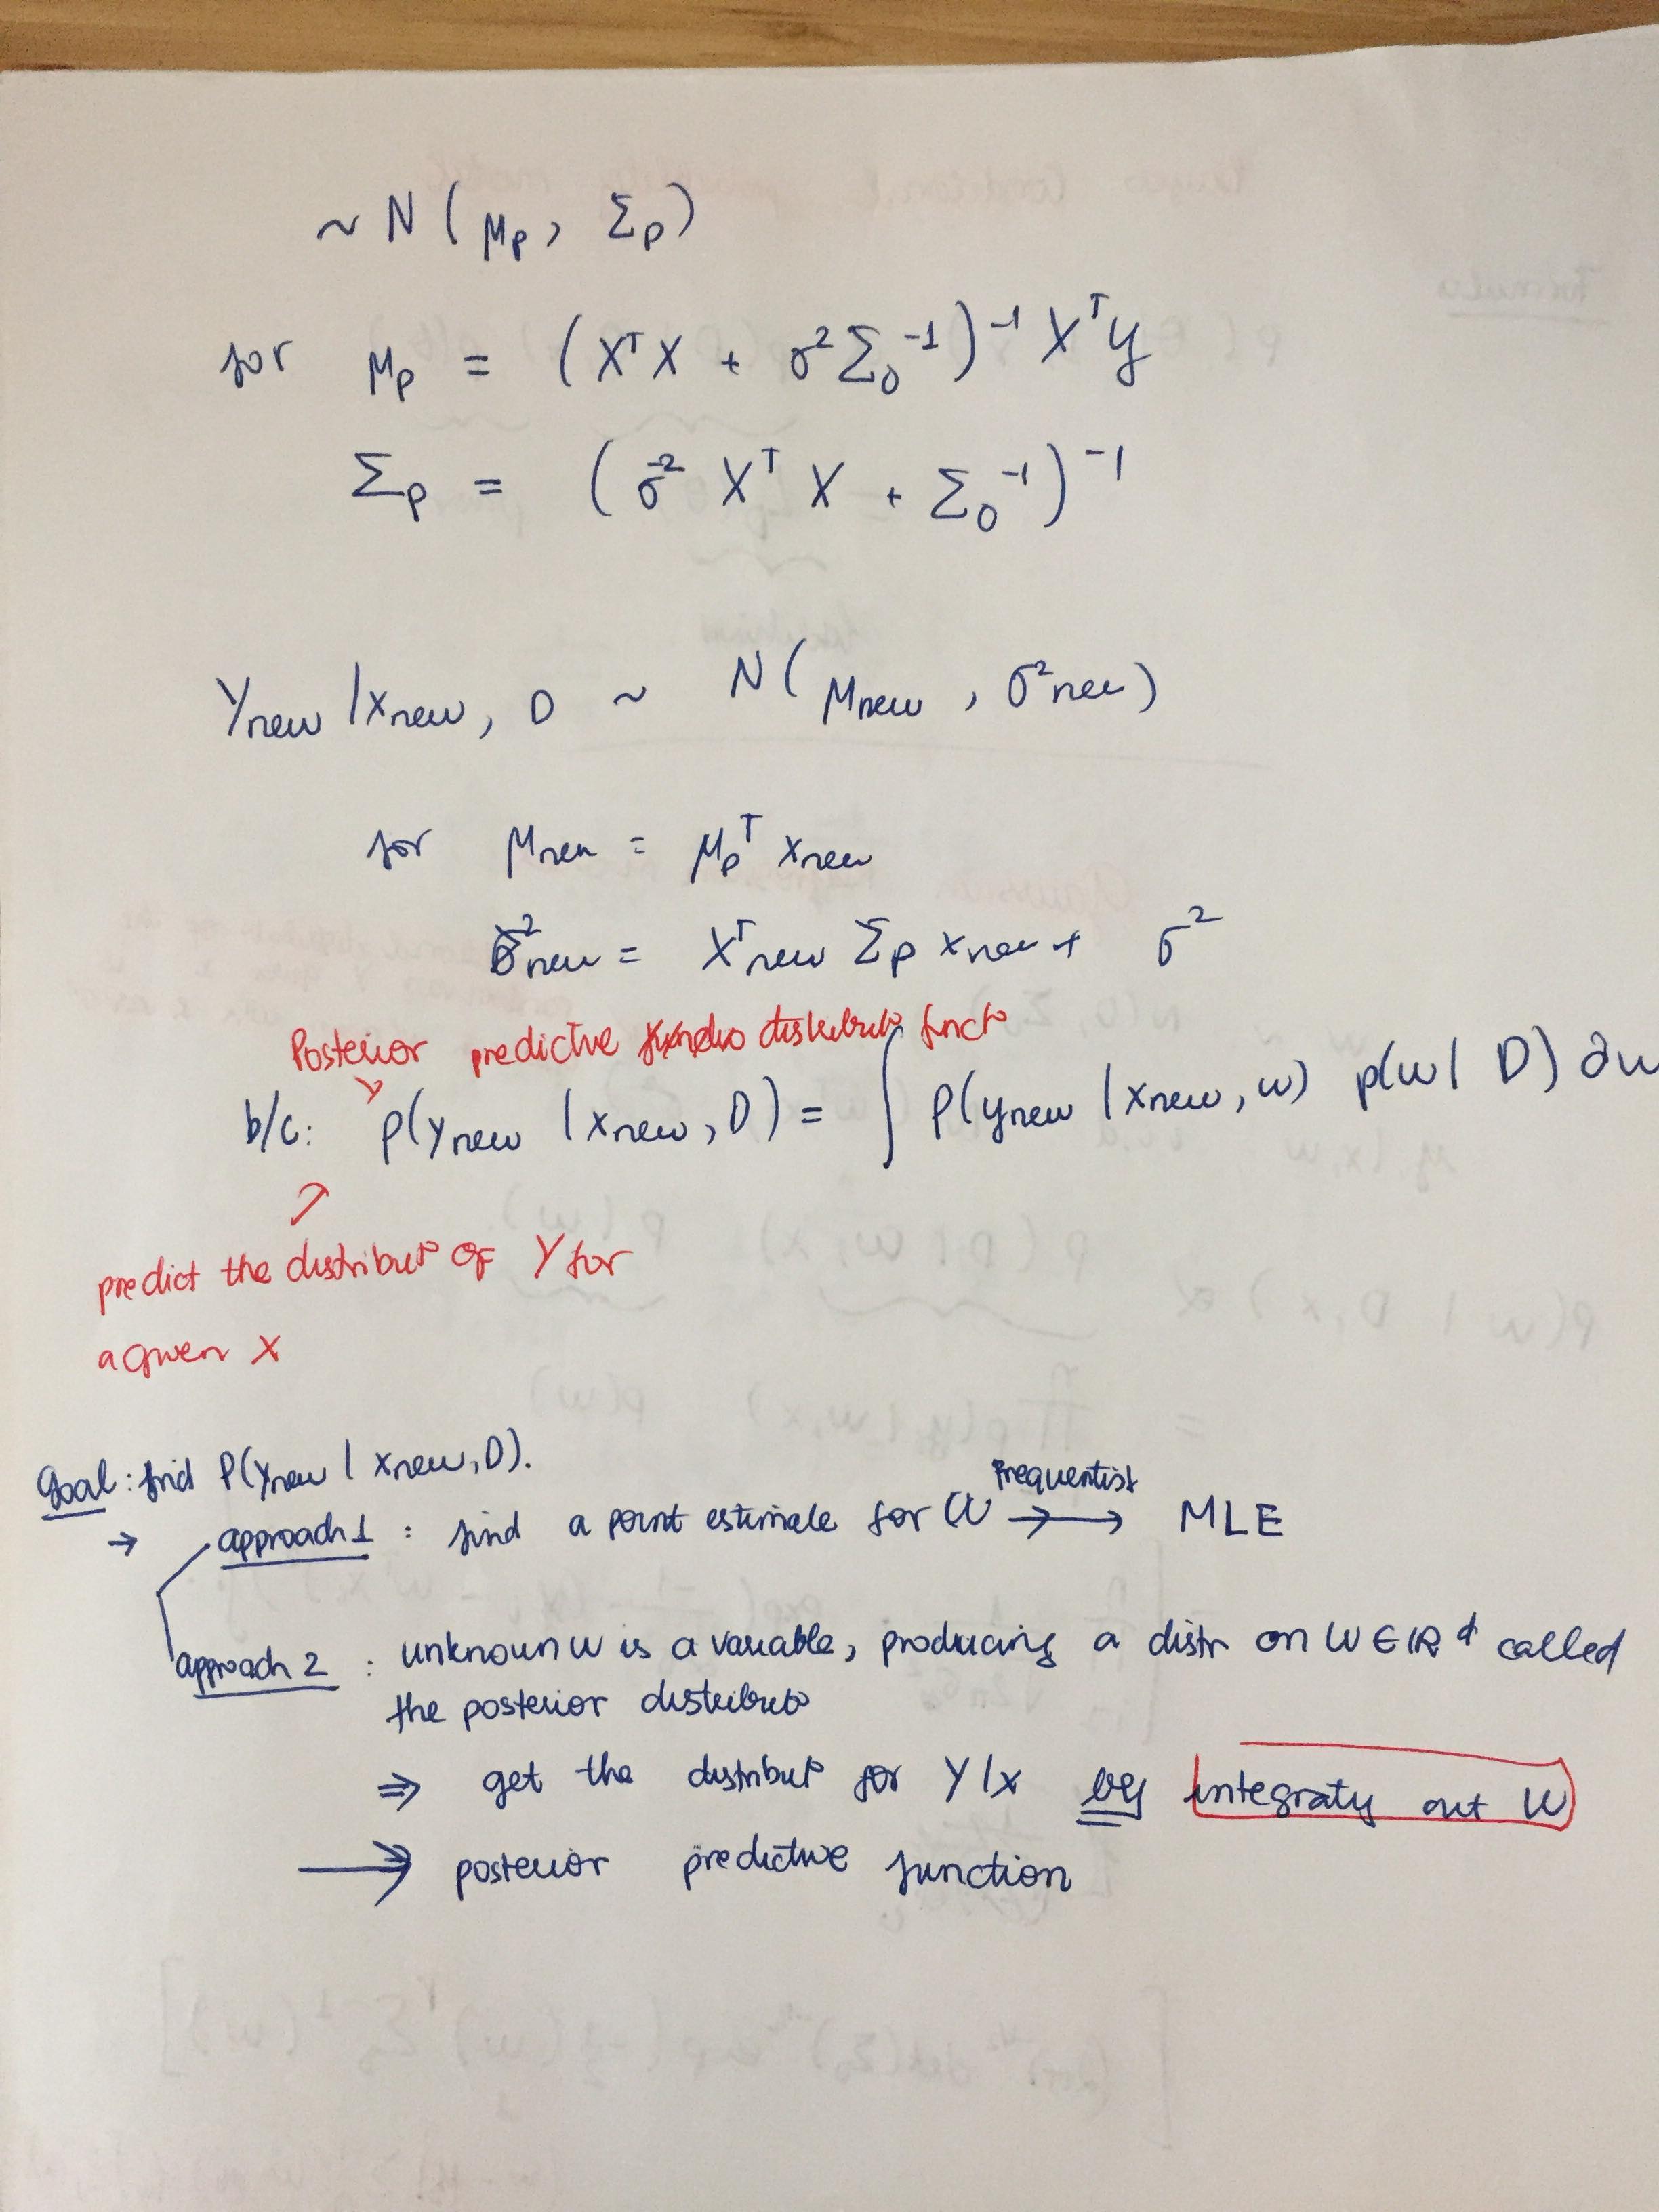 ~ N ( μp, Σp )
for μp = ( XᵀX + σ² Σ₀⁻¹ )⁻¹ Xᵀy
Σp = ( σ⁻² Xᵀ X + Σ₀⁻¹ )⁻¹
Ynew | xnew, D ~ N ( μnew, σ²new )
for μnew = μpᵀ xnew
σ²new = Xᵀnew Σp xnew + σ²
Posterior predictive distributo functo
b/c: p(ynew | xnew, D) = ∫ P(ynew | xnew, w) p(w | D) ∂w
predict the distributo of Y for
a given X
Goal: find P(ynew | xnew, D).
Frequentist
→ approach 1 : find a point estimate for W →→ MLE
approach 2 : unknown w is a variable, producing a distr on W ∈ ℝᵈ called
the posterior distributo
⇒ get the distributo for Y|x by integratg out W
⟹ posterior predictive function